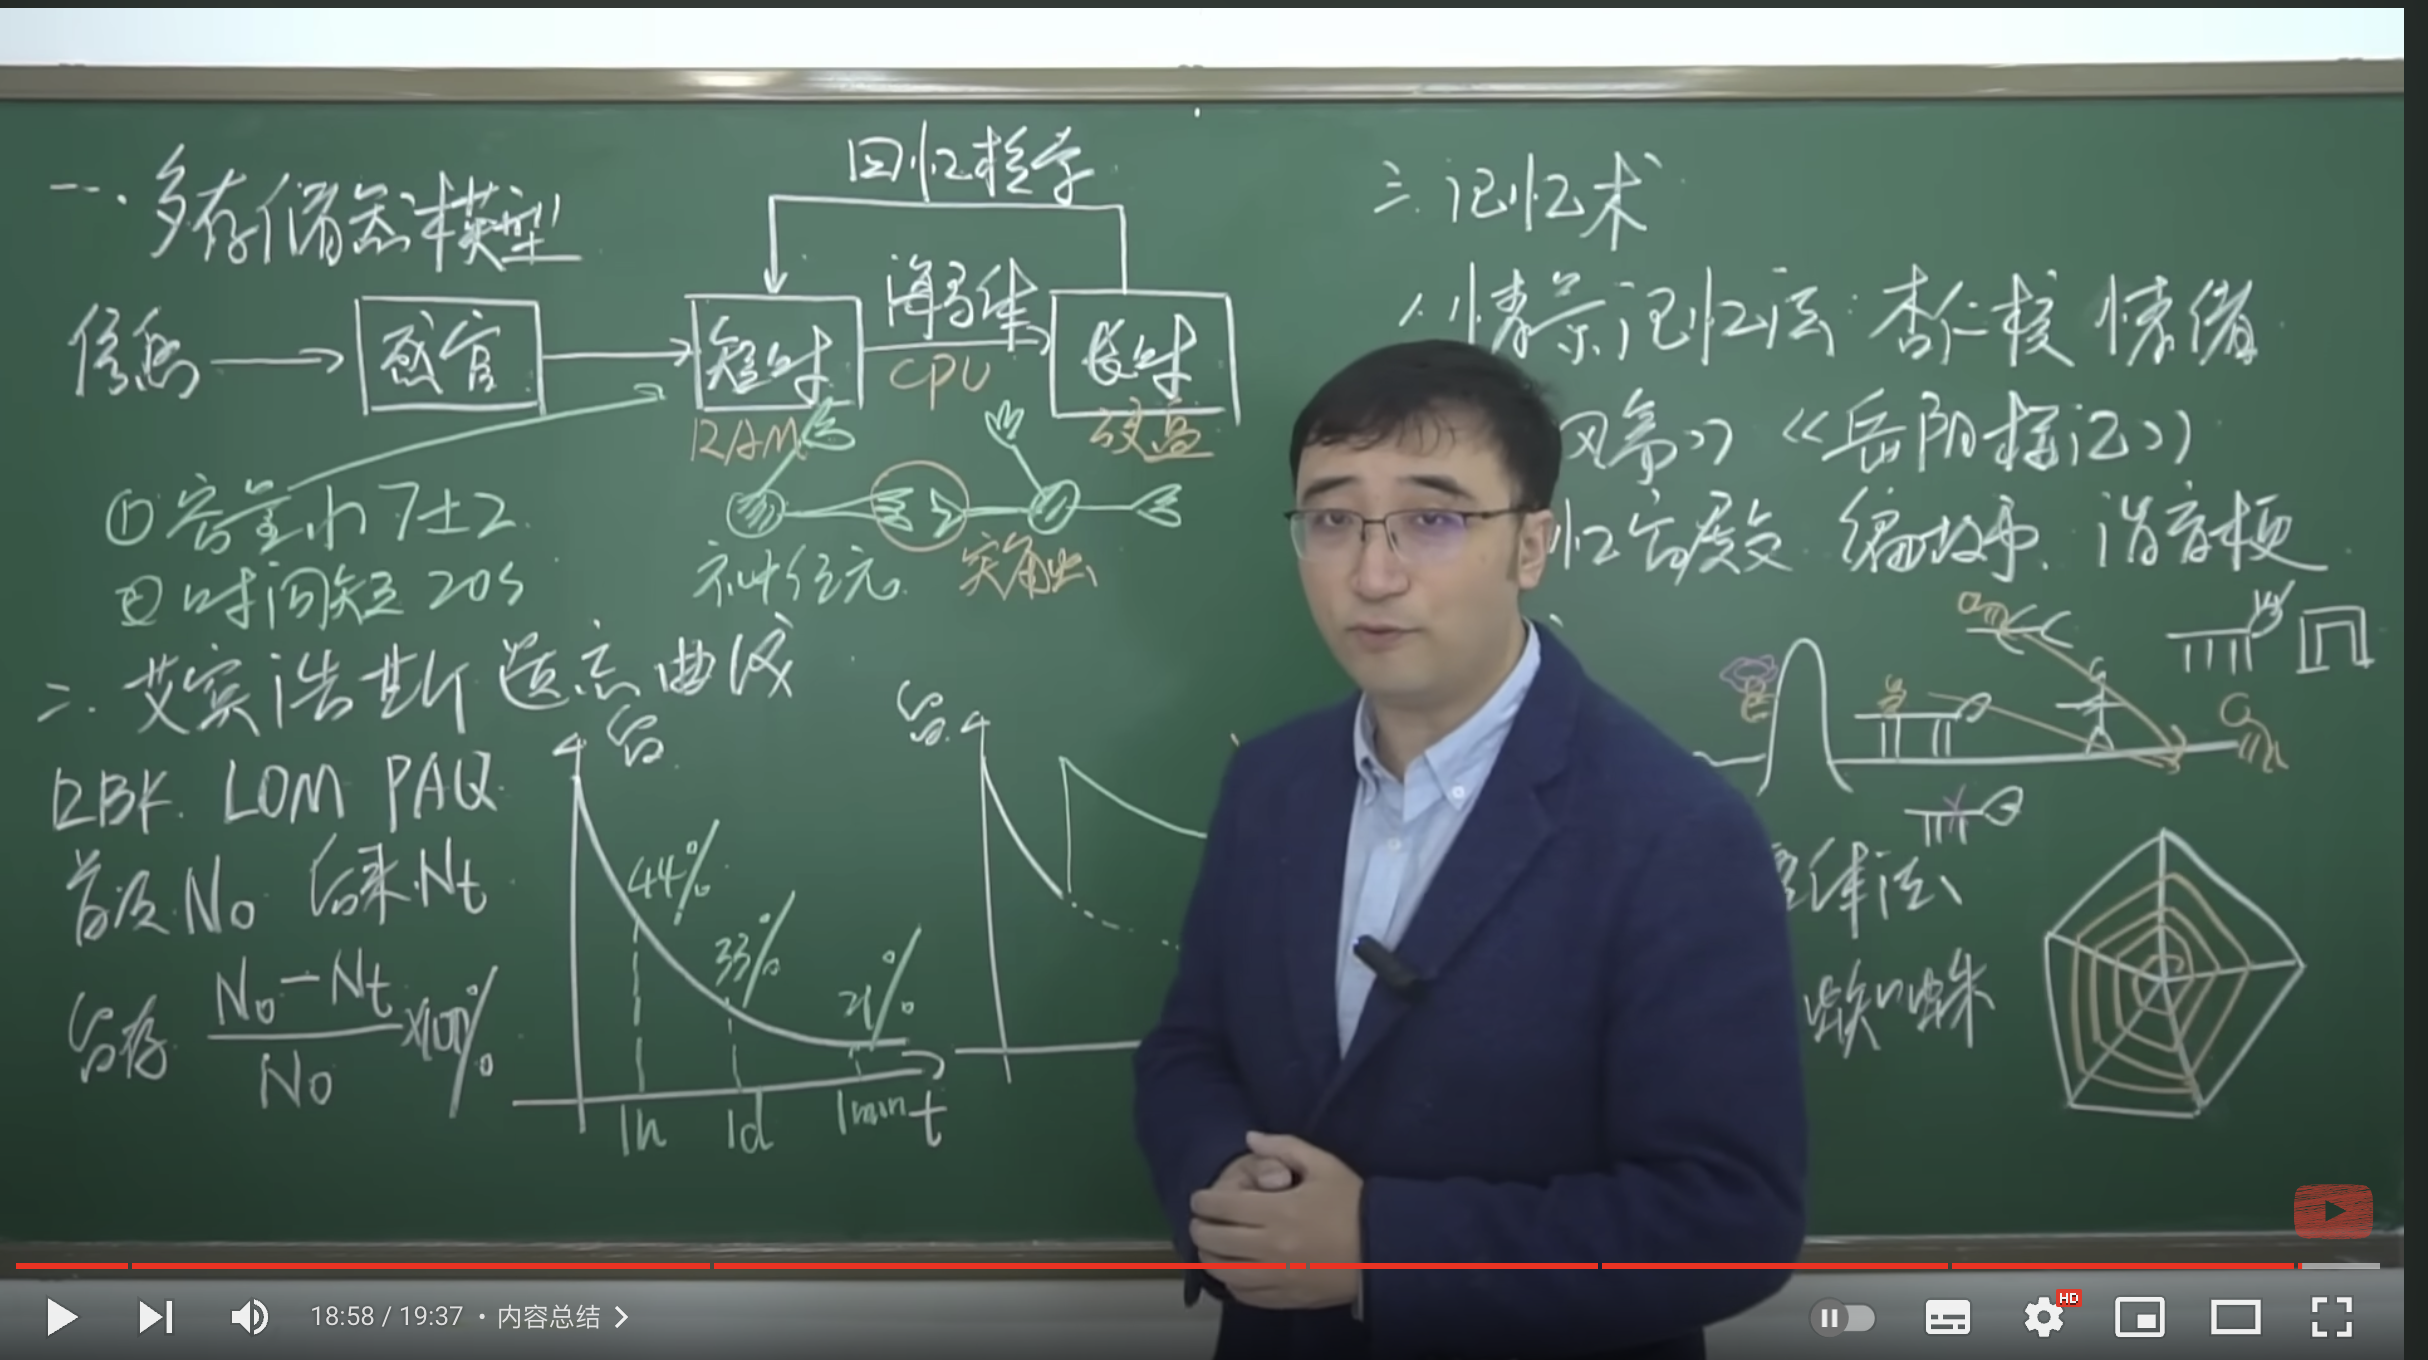 一.多存储器模型
回忆检学
信息
感官
短时
海马体
CPU
长时
RAM
硬盘
①容量小 7±2
②时间短 20s
神经元
突触
二.艾宾浩斯遗忘曲线
RBK. LOM PAQ
首次 N₀ 后来 Nt
留存 (N₀-Nt)/N₀ ×100%
留
44%
33%
21%
1h
1d
1mon
t
留
三.记忆术
1.情景记忆法: 杏仁核 情绪
《岳阳楼记》
编故事. 谐音梗
整体法
蜘蛛
18:58 / 19:37 • 内容总结
HD